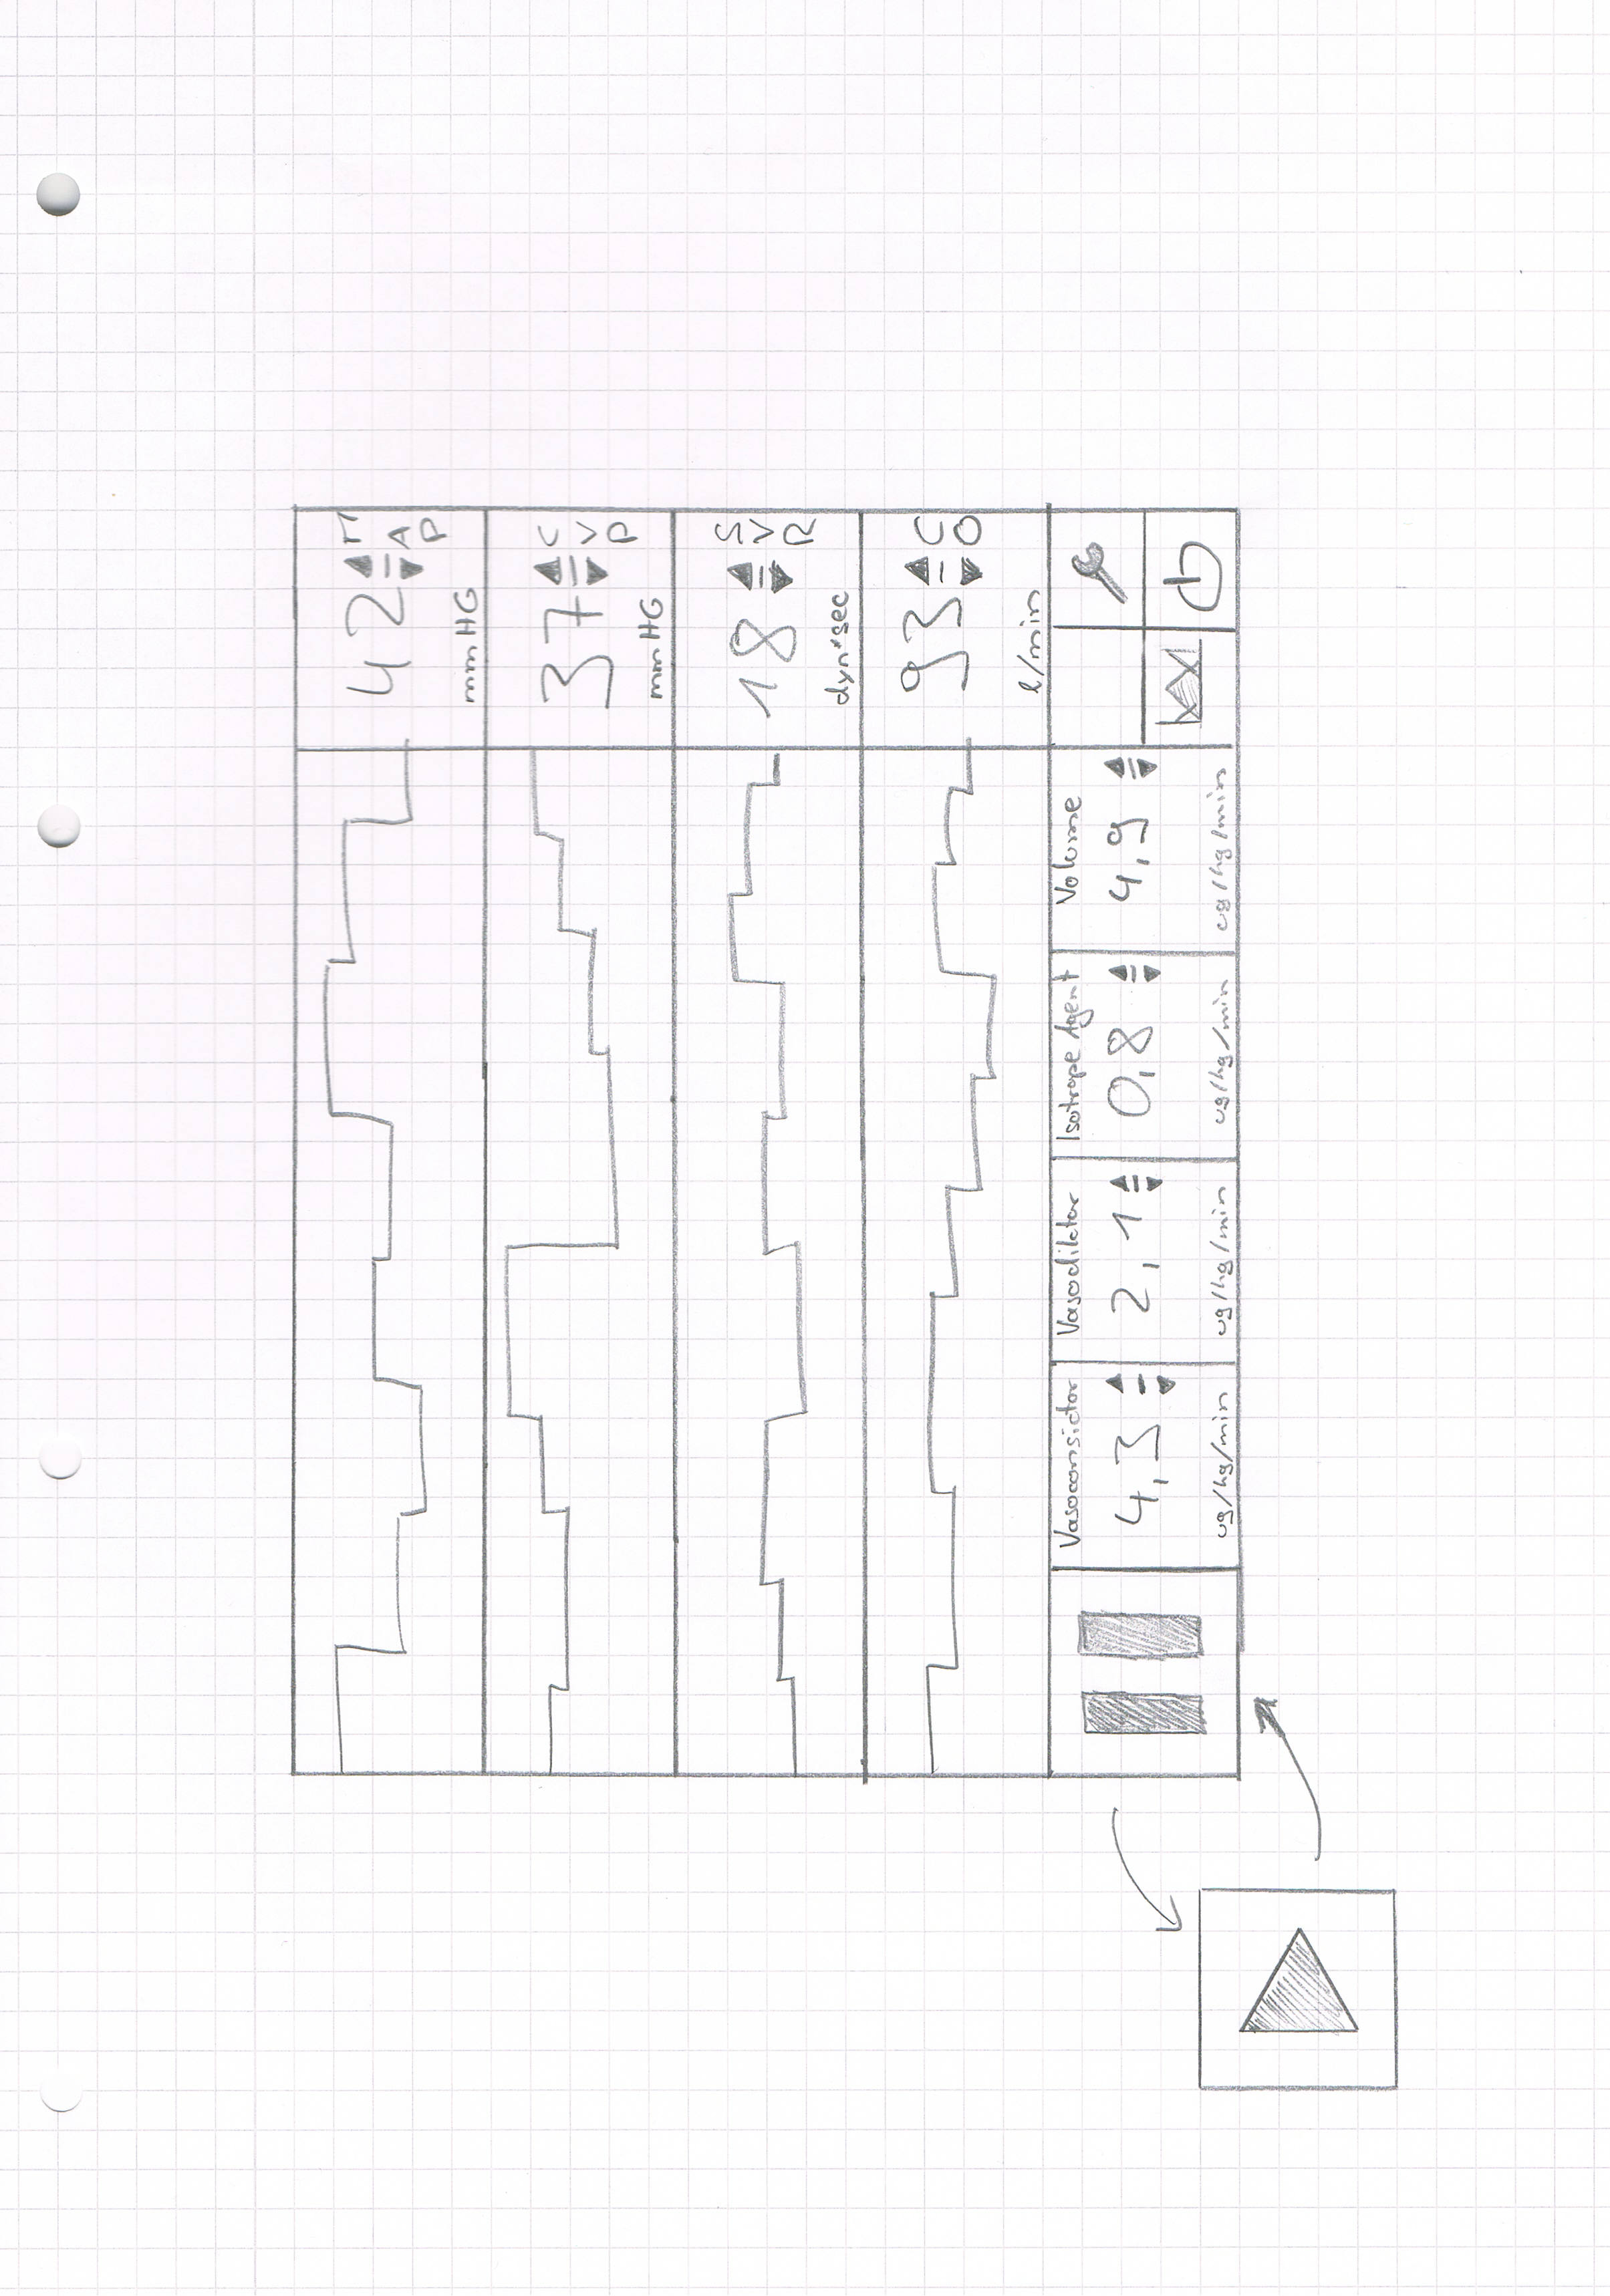 42 MAP
mmHG
37 CVP
mmHG
18 SVR
dyn*sec
93 CO
l/min
Vasoconsictor
4,3
ug/kg/min
Vasodilator
2,1
ug/kg/min
Isotrope Agent
0,8
ug/kg/min
Volume
4,9
ug/kg/min